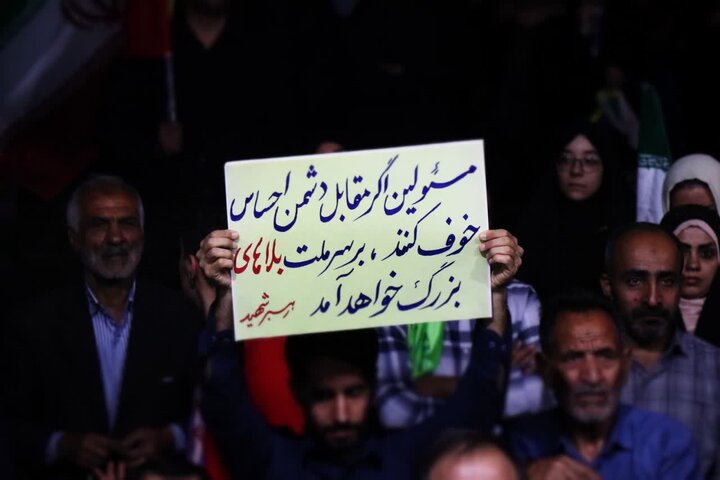 مسئولین اگر مقابل دشمن احساس
خوف کنند، بر سر ملت بلاهای
بزرگ خواهد آمد
رهبر شهید